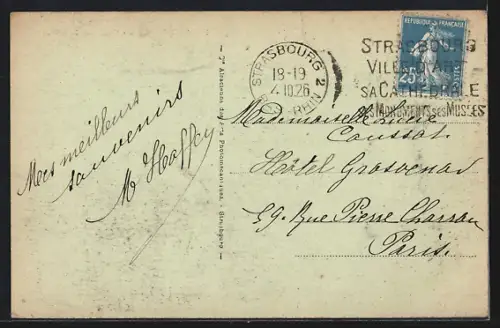 Mes meilleurs
souvenirs
M Haffey
STRASBOURG 2
18-19
4 10 26
BAS-RHIN
STRASBOURG
VILLE D'ART
SA CATHEDRALE
SES MONUMENTS SES MUSEES
REPUBLIQUE FRANÇAISE
25c
POSTES
Mademoiselle
Coussot
Hôtel Grosvenor
59. Rue Pierre Charron
Paris.
Strasbourg